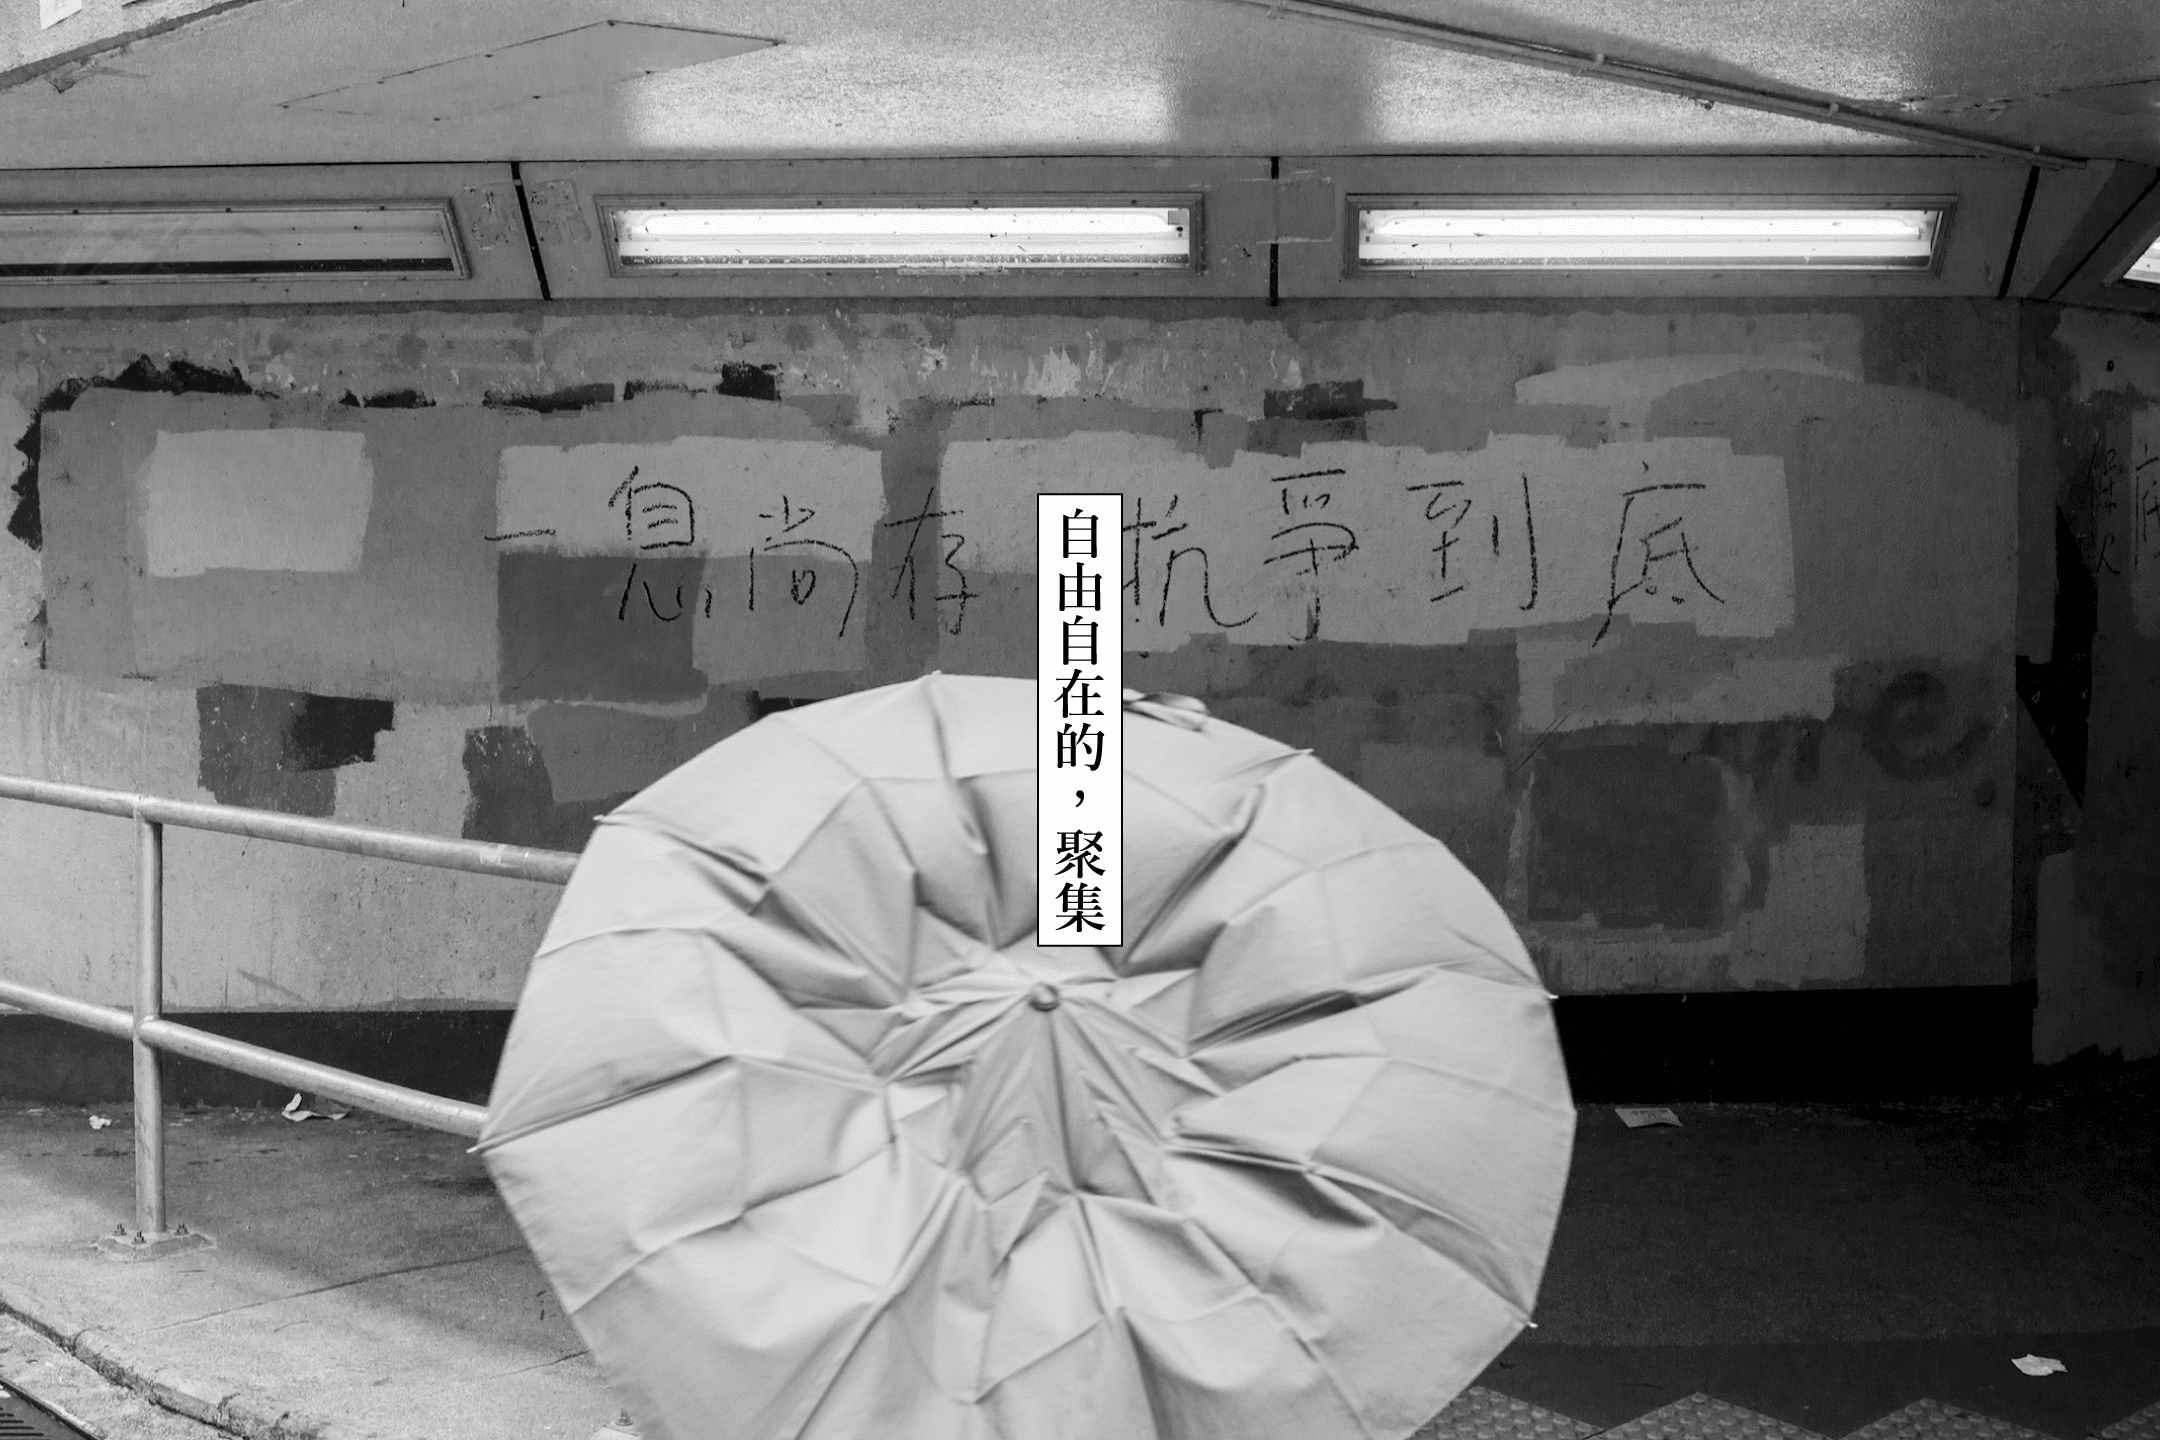 一息尚存 抗爭到底
自由自在的，聚集